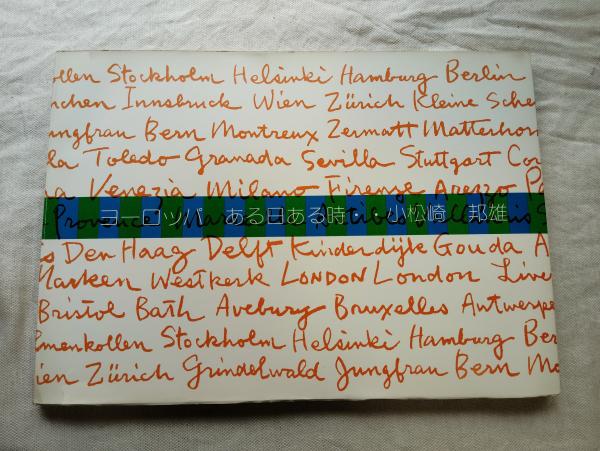 ollen Stockholm Helsinki Hamburg Berlin
nchen Innsbruck Wien Zürich Kleine Sche
ungfrau Bern Montreux Zermatt Matterhorn
la Toledo Granada Sevilla Stuttgart Cor
a Venezia Milano Firenze Arezzo Pa
Provence
ヨーロッパ ある日ある時・・小松崎 邦雄
s Den Haag Delft Kinderdijk Gouda A
Marken Westkerk LONDON London Live
Bristol Bath Avebury Bruxelles Antwerpe
lmenkollen Stockholm Helsinki Hamburg Ber
ien Zürich Grindelwald Jungfrau Bern Mo